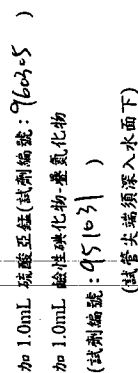 加 1.0mL 硫酸亞錳(試劑編號：960305)
加 1.0mL 鹼性碘化物-疊氮化物
(試劑編號：951031)
(試管尖端須深入水面下)